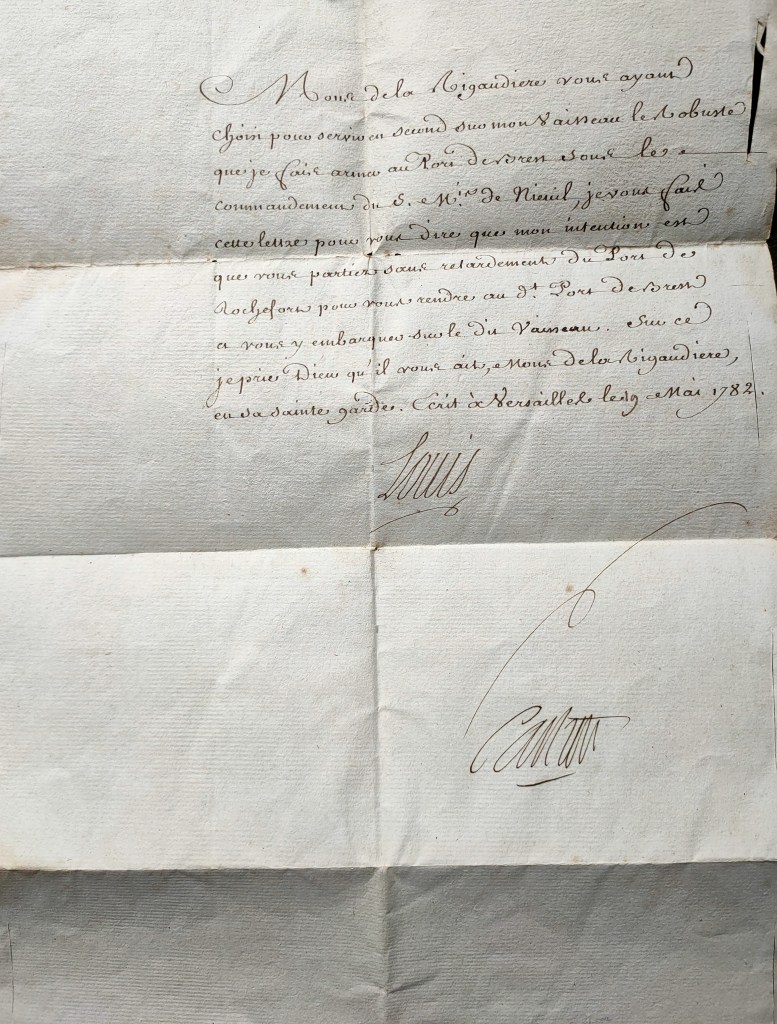 Mons. de la Rigaudiere vous ayant
choisi pour servir en second sur mon Vaisseau le Robuste
que je fais armer au Port de Brest sous le
commandement du S. Mis. de Nieuil, je vous fais
cette lettre pour vous dire que mon intention est
que vous partiez sans retardement du Port de
Rochefort pour vous rendre au dt. Port de Brest
et vous y embarquer sur le dit Vaisseau. Sur ce
je prie Dieu qu'il vous ait, Mons. de la Rigaudiere,
en sa sainte garde. Ecrit à Versailles le 19 Mai 1782.
Louis
Castries